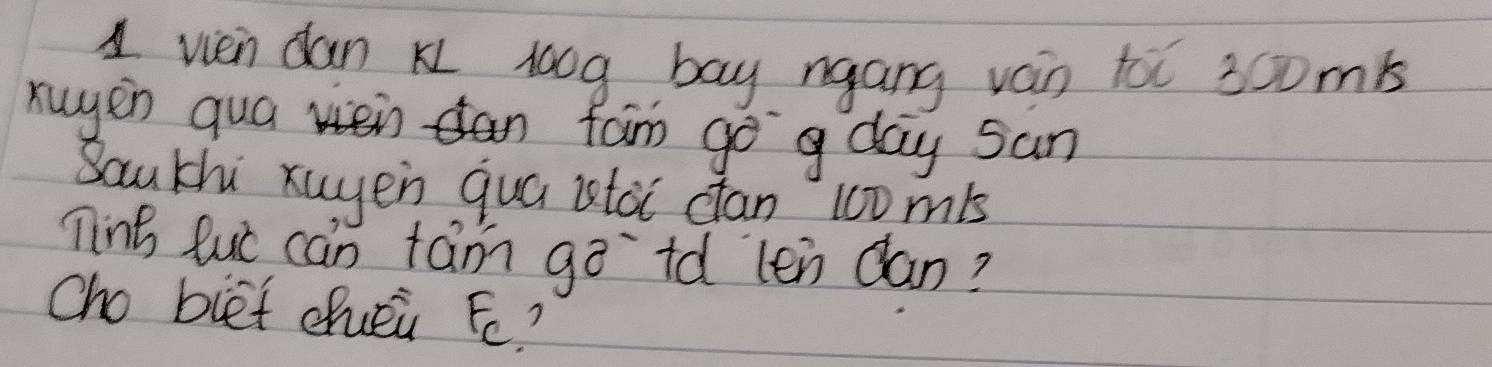 1 viên đạn KL 100g bay ngang vận tối 300m/s
xuyên qua tấm gỗ dày 5cm
Sau khi xuyên qua v tối đạn 100m/s
Tính lực cản tấm gỗ td lên đạn?
Cho biết chiều Fc?